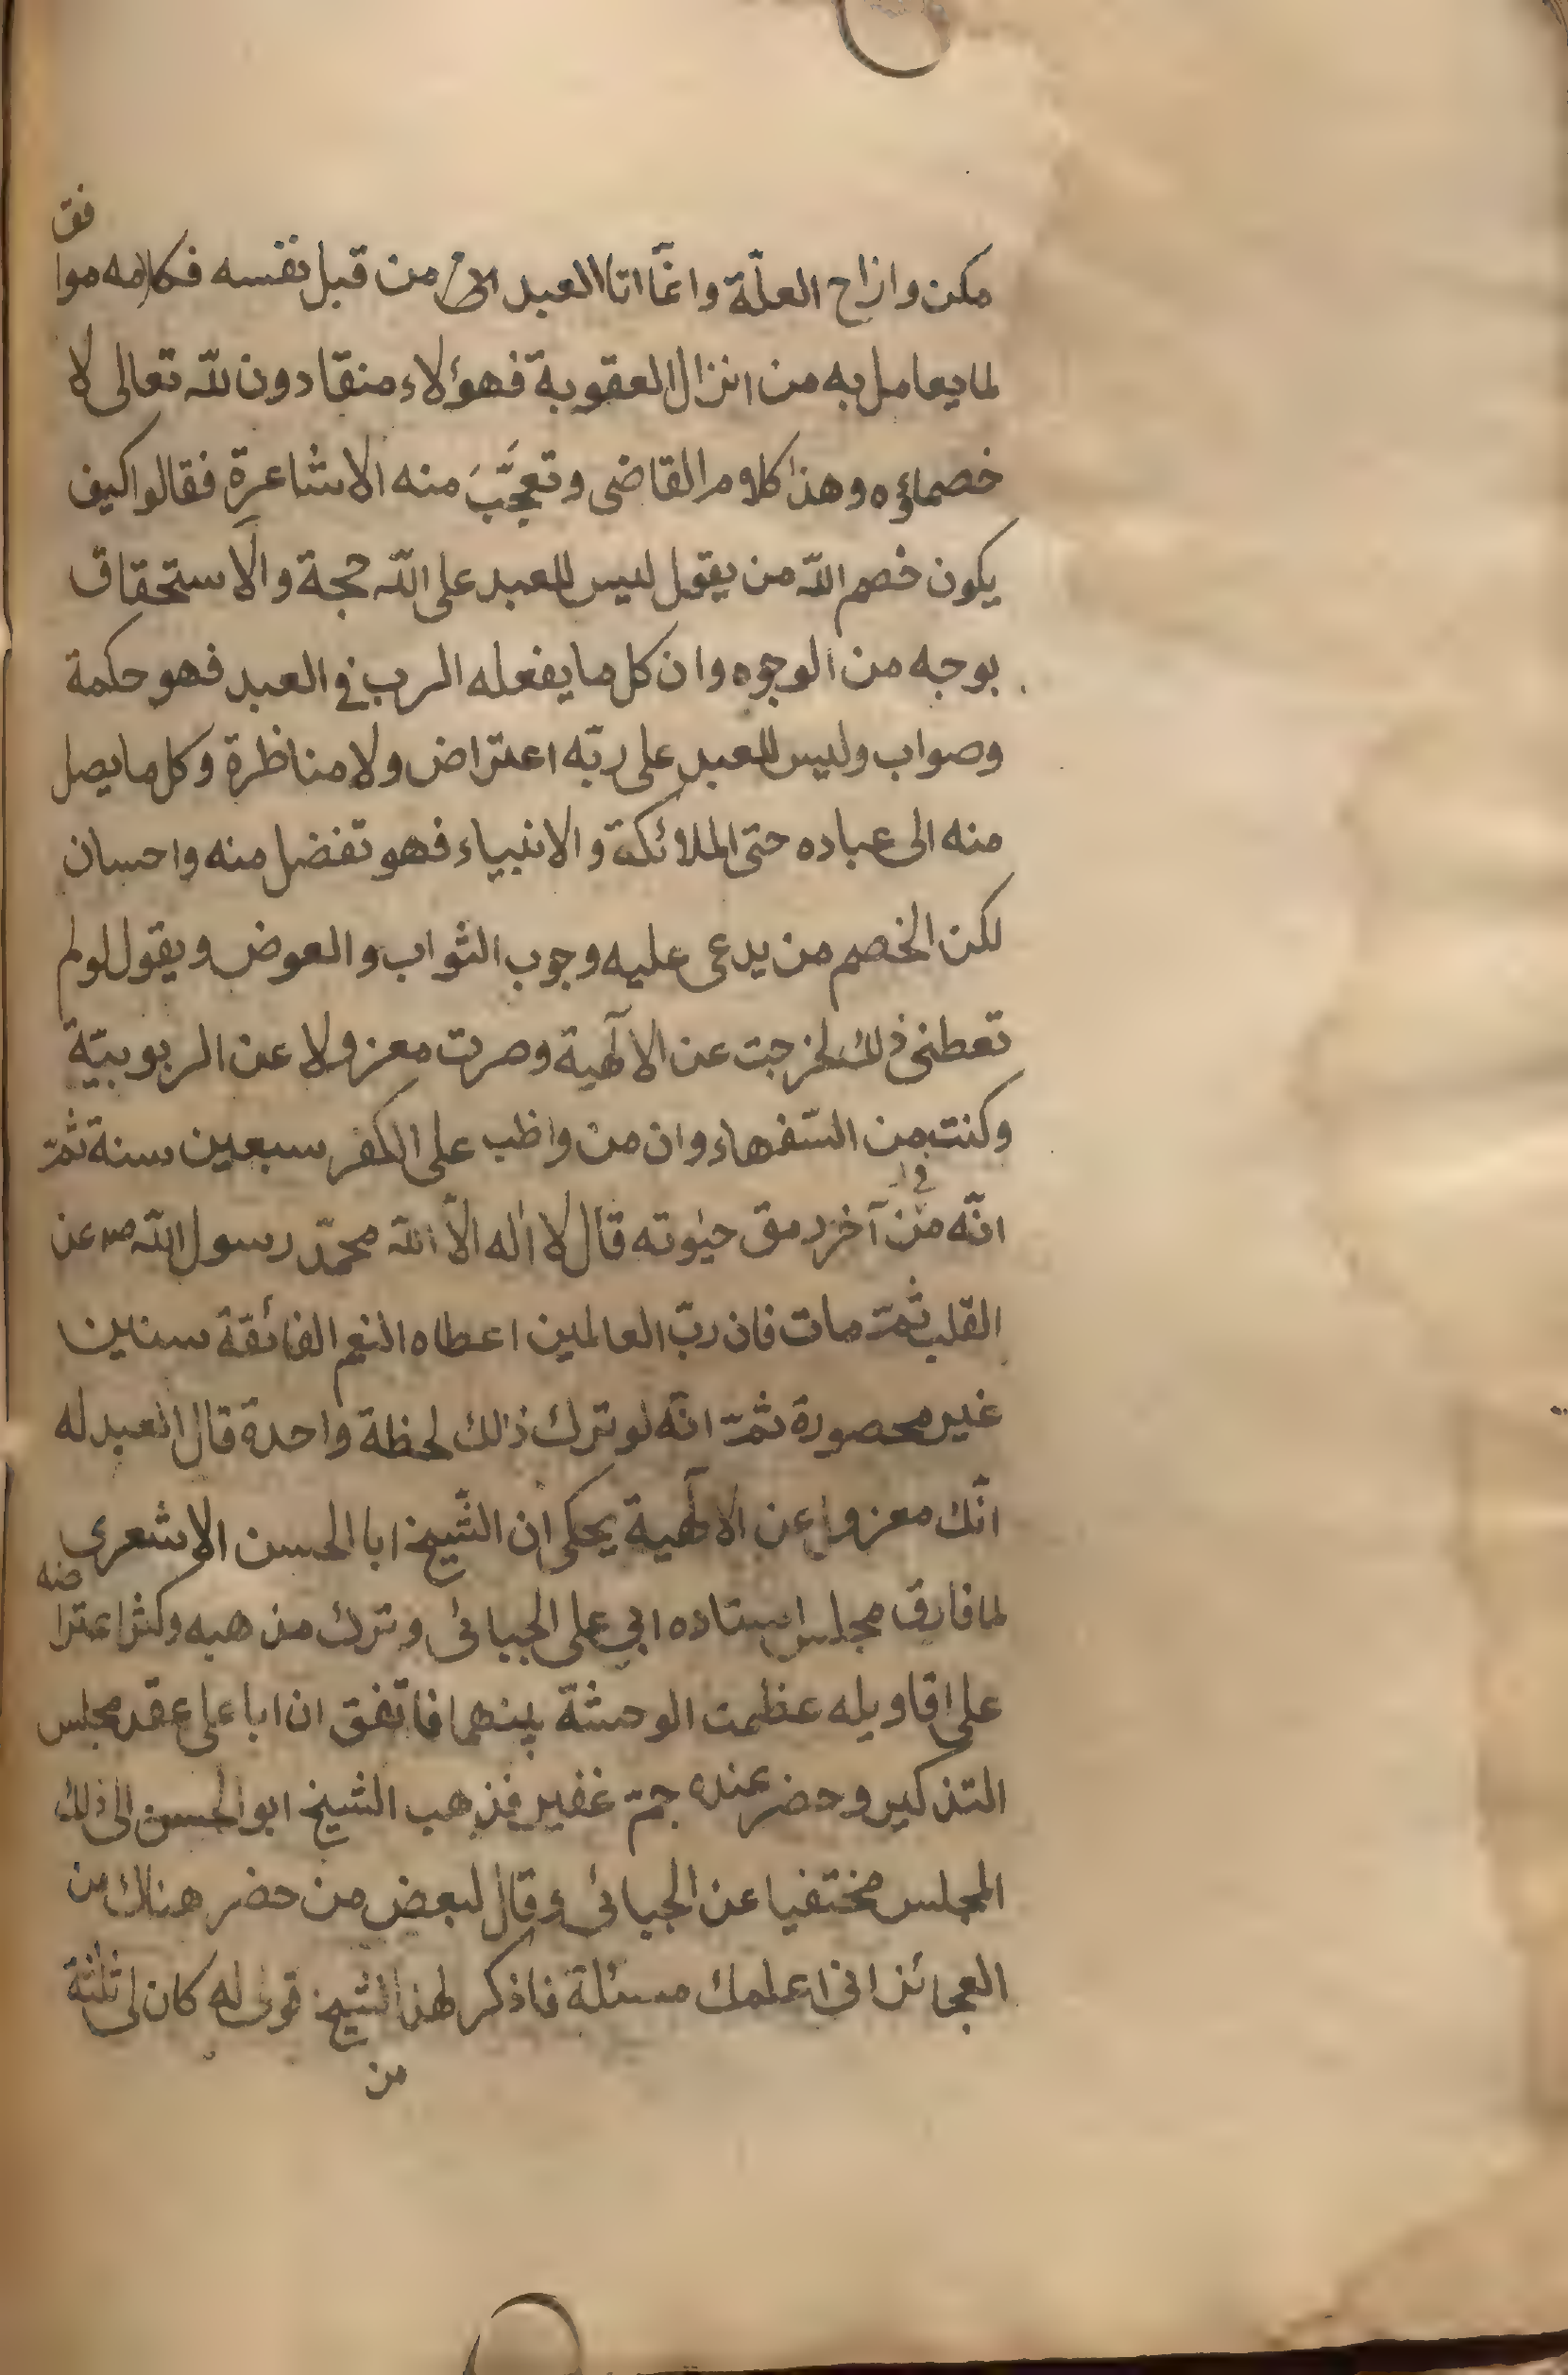 مكن وازاح العلّة وانمّا اتا العبد من قبل نفسه فكلامه موافق
لما يعامل به من انزال العقوبة فهؤلاء منقادون للّه تعالى لا
خصماؤه وهذا كلام القاضى وتعجَّبَ منه الاشاعرة فقالوا كيف
يكون خصم اللّه من يقول ليس للعبد على اللّه حجة والاستحقاق
بوجه من الوجوه وان كل ما يفعله الرب فى العبد فهو حكمة
وصواب وليس للعبد على ربّه اعتراض ولا مناظرة وكل ما يصل
منه الى عباده حتى الملائكة والانبياء فهو تفضل منه واحسان
لكن الخصم من يدعى عليه وجوب الثواب والعوض ويقول لو لم
تعطنى ذلك لخرجت عن الالٓهية وصرت معزولا عن الربوبيّة
وكنت من السّفهاء وان من واظب على الكفر سبعين سنة ثمّ
انّه من فى آخر رمق حيٰوته قال لا اله الاّ اللّه محمّد رسول اللّه صم عن
القلب ثمّ مات فان ربّ العالمين اعطاه النعم الفائقة سنين
غير محصورة ثمّ انّه لو ترك ذالك لحظة واحدة قال العبد له
انّك معزول عن الالٓهية يحكى ان الشّيخ ابا الحسن الاشعرى
لما فارق مجلس استاده ابي على الجبائى وترك مذهبه وكثر اعتراضه
على اقاويله عظمت الوحشة بينهما فاتفق ان ابا على عقد مجلس
التذكير وحضر عنده جمّ غفير فذهب الشيخ ابو الحسن الى ذلك
المجلس مختفيا عن الجبائى وقال لبعض من حضر هناك من
العجائز انى اعلمك مسئلة فاذكر لهذا الشيخ قولى له كان لى ثلثة
من